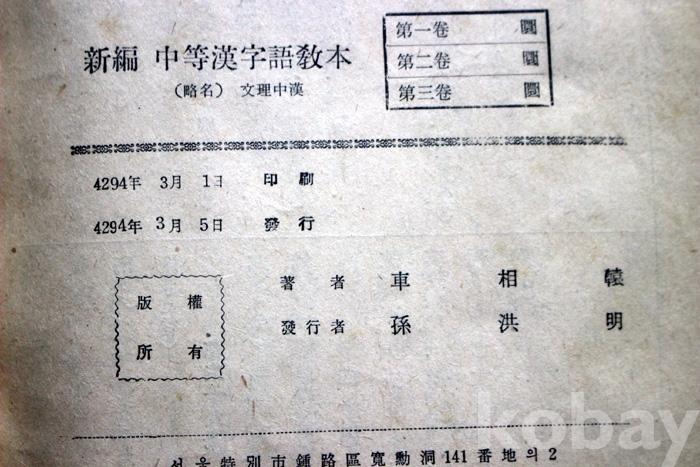 新編 中等漢字語敎本
(略名) 文理中漢
第一卷 圜
第二卷 圜
第三卷 圜
4294年 3月 1日 印刷
4294年 3月 5日 發行
版權
所有
著者 車相轅
發行者 孫洪明
서울特別市鍾路區寬勳洞141番地의2
kobay